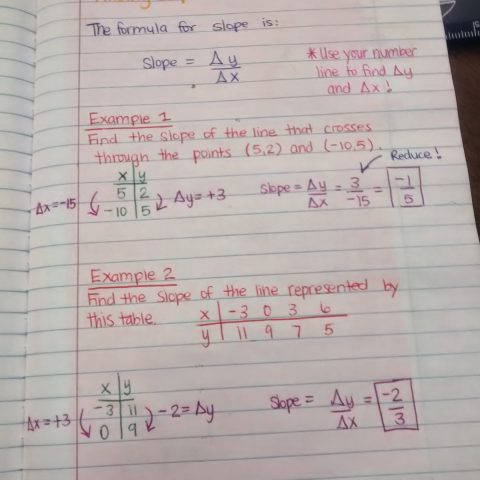 The formula for slope is:
Slope = Δy/Δx
*Use your number
line to find Δy
and Δx!
Example 1
Find the slope of the line that crosses
through the points (5,2) and (-10,5).
Reduce!
x | y
5 | 2
-10 | 5
Δx=-15
Δy=+3
Slope = Δy/Δx = 3/-15 = -1/5
Example 2
Find the slope of the line represented by
this table.
x | -3 0 3 6
y | 11 9 7 5
x | y
-3 | 11
0 | 9
Δx=+3
-2=Δy
Slope = Δy/Δx = -2/3